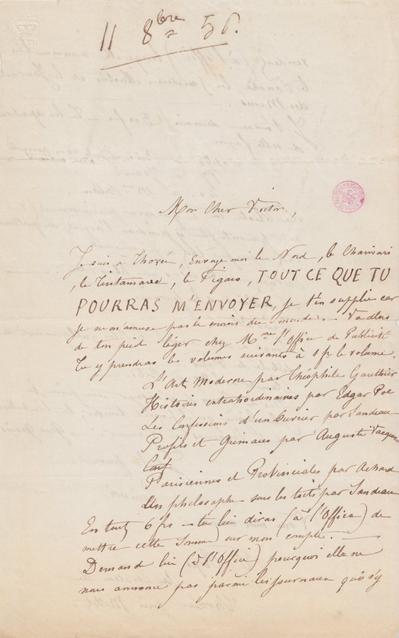 11 8bre 56.
Mon Cher Victor,
Je suis à Thozée, envoye moi le Nord, le Charivari
, le Tintamarre, le Figaro, TOUT CE QUE TU
POURRAS M'ENVOYER, je t'en supplie car
je m'amuse pas le moins du monde. Va donc
de ton pied léger chez Mme l'Office de Publicité
Tu y prendras les volumes suivants à 1 fr le volume.
L'Art Moderne par Théophile Gauthier
Histoires extraordinaires par Edgar Poe
Les Confessions d'un Ouvrier par Sandeau
Profils et Grimaces par Auguste Vacquerie
Parisiennes et Provinciales par Achard
Un philosophe sous les toits par Sandeau
En tout 6 frs — tu lui diras (à l'Office) de
mettre cette Somme sur mon compte. —
Demand lui (à l'Office) pourquoi elle ne
nous annonce pas parmi les journaux qu'on s'y